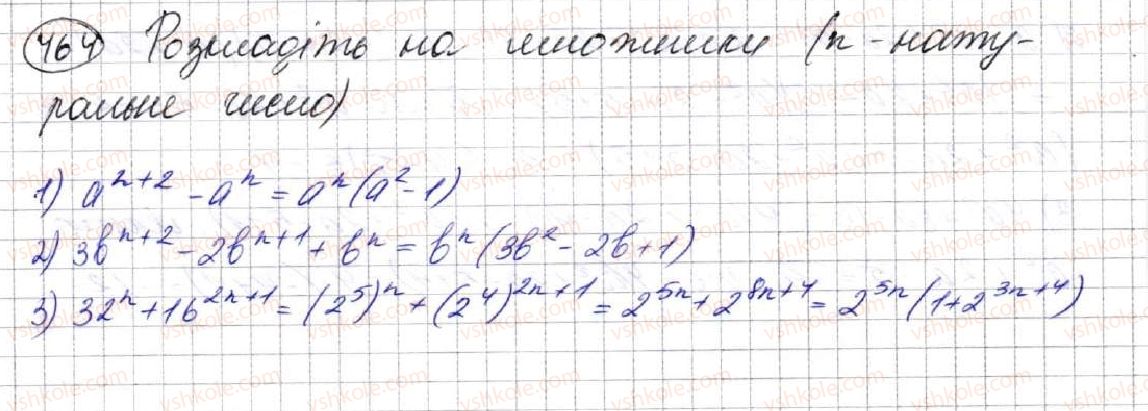 464 Розкладіть на множники (n - нату-
ральне число)
1) a^{n+2} - a^n = a^n(a^2 - 1)
2) 3b^{n+2} - 2b^{n+1} + b^n = b^n(3b^2 - 2b + 1)
3) 32^n + 16^{2n+1} = (2^5)^n + (2^4)^{2n+1} = 2^{5n} + 2^{8n+4} = 2^{5n}(1 + 2^{3n+4})